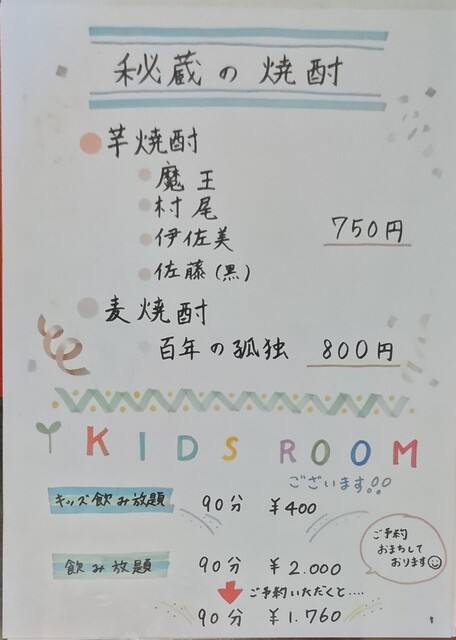 秘蔵の焼酎
芋焼酎
魔王
村尾
伊佐美 750円
佐藤(黒)
麦焼酎
百年の孤独 800円
KIDS ROOM
ございます!!
キッズ飲み放題 90分 ¥400
飲み放題 90分 ¥2.000
ご予約いただくと....
90分 ¥1.760
ご予約
おまちして
おります